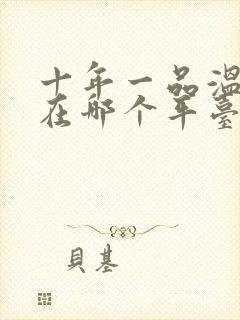 十年一品温
在哪个平臺
貝基